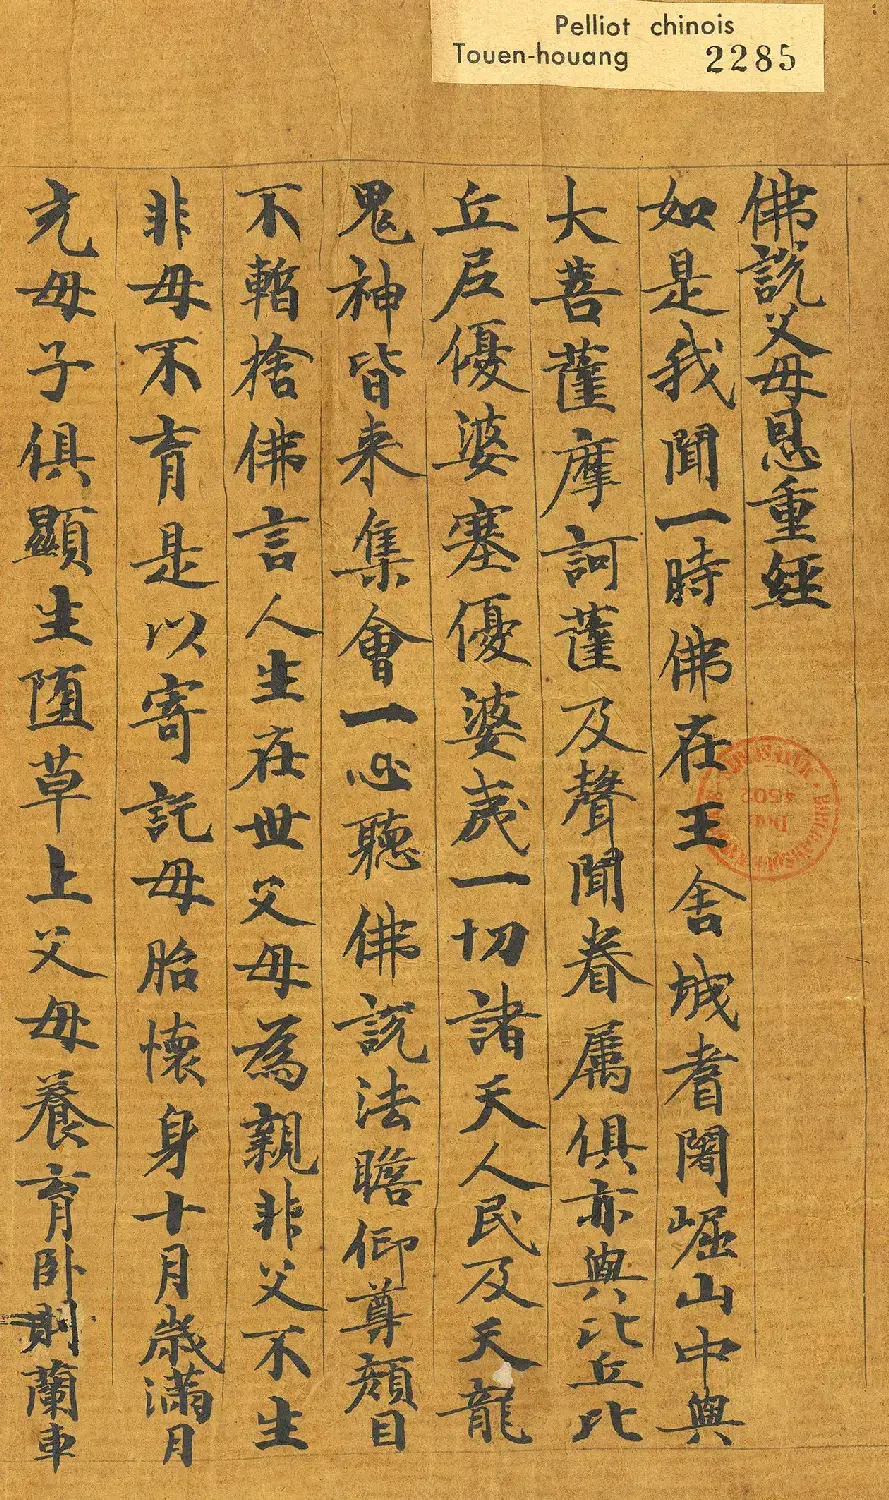 Pelliot chinois
Touen-houang 2285
佛說父母恩重經
如是我聞一時佛在王舍城耆闍崛山中與
大菩薩摩訶薩及聲聞眷屬俱亦與比丘比
丘尼優婆塞優婆夷一切諸天人民及天龍
鬼神皆来集會一心聽佛說法瞻仰尊顏目
不暫捨佛言人生在世父母為親非父不生
非母不育是以寄託母胎懷身十月歲滿月
充母子俱顯生墮草上父母養育卧則蘭車